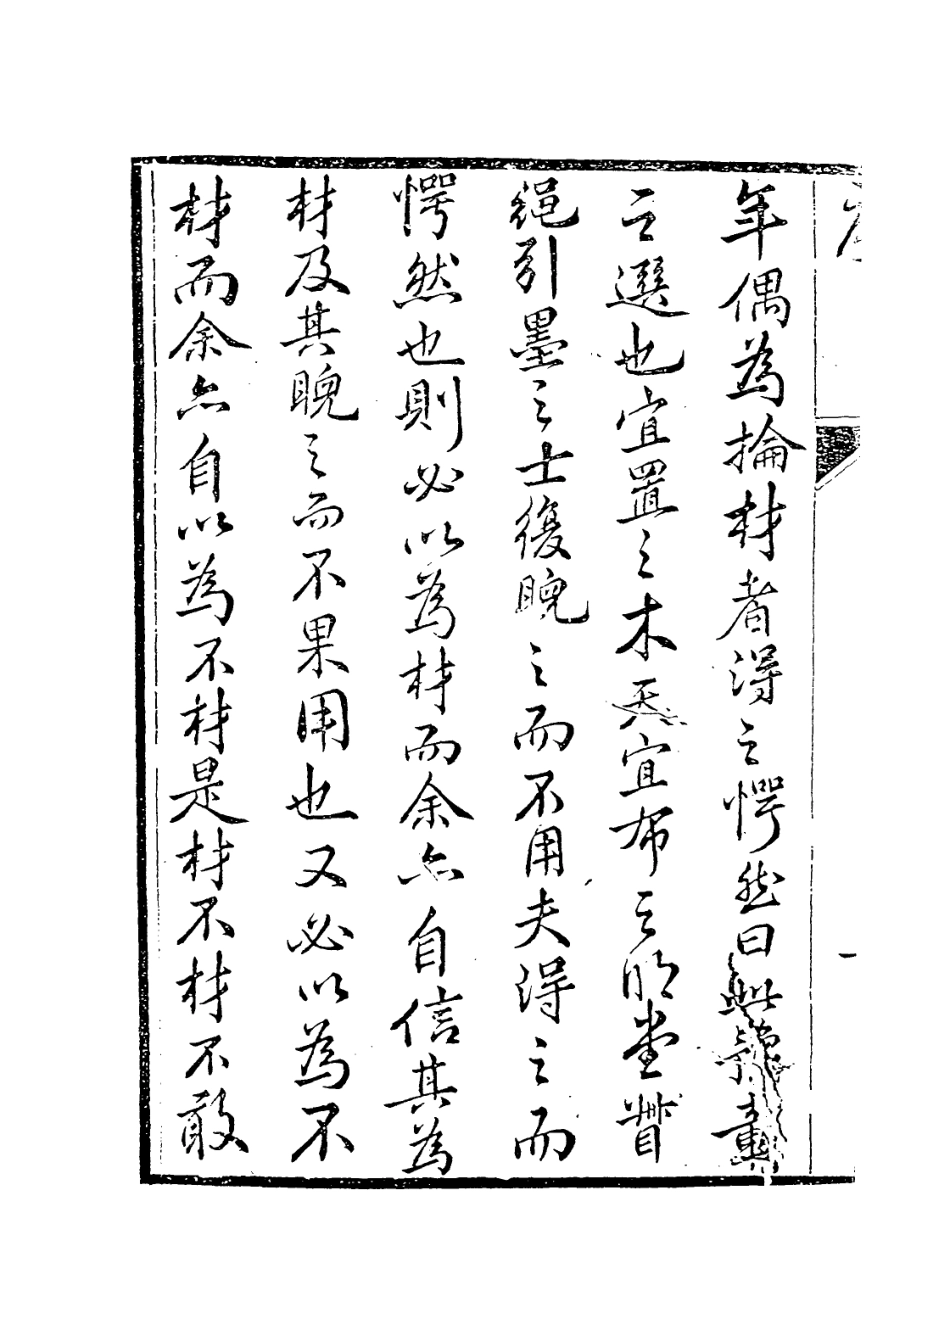 序
一
年偶為掄材者得之愕然曰此
之選也宜置之木天宜布之明堂
繩引墨之士復睨之而不用夫得之而
愕然也則必以為材而余亦自信其為
材及其睨之而不果用也又必以為不
材而余亦自以為不材是材不材不敢